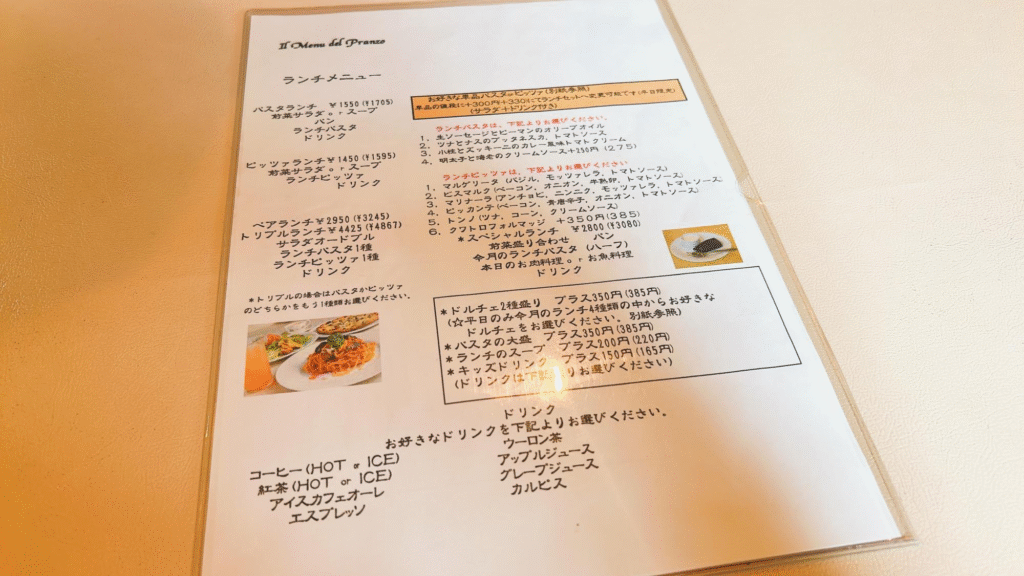 Il Menu del Pranzo
ランチメニュー
パスタランチ ￥1550 (¥1705)
前菜サラダorスープ
パン
ランチパスタ
ドリンク
ピッツァランチ￥1450 (¥1595)
前菜サラダorスープ
ランチピッツァ
ドリンク
ペアランチ￥2950 (¥3245)
トリプルランチ￥4425 (¥4867)
サラダオードブル
ランチパスタ1種
ランチピッツァ1種
ドリンク
*トリプルの場合はパスタかピッツァ
のどちらかをもう1種類お選びください。
お好きな単品パスタorピッツァ(別紙参照)
単品の値段に+300円+330にてランチセットへ変更可能です(平日限定)
(サラダ+ドリンク付き)
ランチパスタは、下記よりお選びください。
1. 生ソーセージとピーマンのオリーブオイル
2. ツナとナスのプッタネスカ、トマトソース
3. 小枝とズッキーニのカレー風味トマトクリーム
4. 明太子と湯走のクリームソース+250円 (275)
ランチピッツァは、下記よりお選びください
1. マルゲリータ (バジル、モッツァレラ、トマトソース)
2. ビスマルク (ベーコン、オニオン、半熟卵、トマトソース)
3. マリナーラ (アンチョビ、ニンニク、モッツァレラ、トマトソース)
4. ピッカンテ (ベーコン、青唐辛子、オニオン、トマトソース)
5. トンノ (ツナ、コーン、クリームソース)
6. クワトロフォルマッジ +350円(385)
*スペシャルランチ ￥2800 (¥3080)
前菜盛り合わせ パン
今月のランチパスタ (ハーフ)
本日のお肉料理orお魚料理
ドリンク
*ドルチェ2種盛り プラス350円(385円)
(☆平日のみ今月のランチ4種類の中からお好きな
ドルチェをお選びください。別紙参照)
*パスタの大盛 プラス350円(385円)
*ランチのスープ プラス200円(220円)
*キッズドリンク プラス150円(165円)
(ドリンクは下記よりお選びください)
ドリンク
お好きなドリンクを下記よりお選びください。
コーヒー(HOT or ICE)
紅茶(HOT or ICE)
アイスカフェオーレ
エスプレッソ
ウーロン茶
アップルジュース
グレープジュース
カルピス